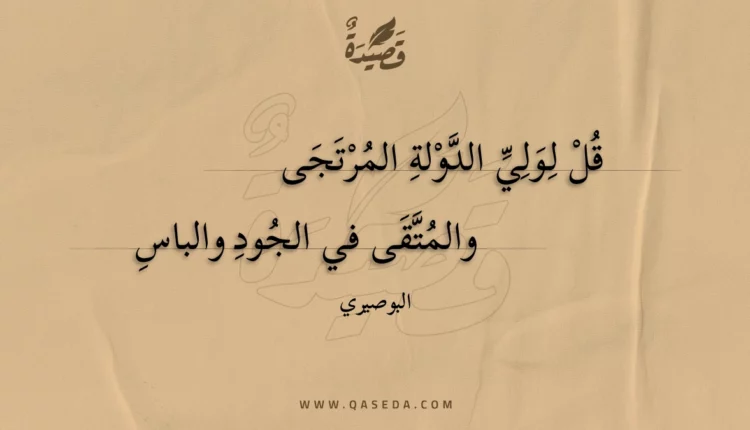 قَصِيدَةٌ
قُلْ لِوَلِيِّ الدَّوْلةِ المُرْتَجَى
والمُتَّقَى في الجُودِ والباسِ
البوصيري
WWW.QASEDA.COM